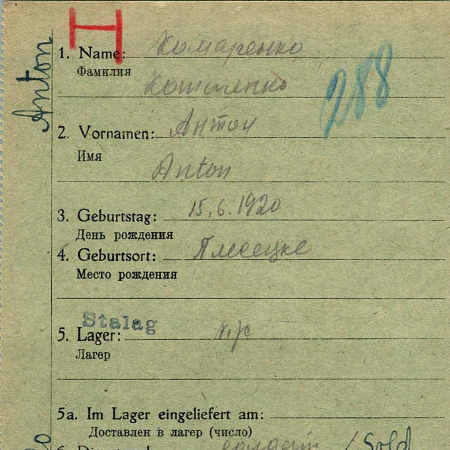 Anton
1. Name: Комаренко
Фамилия
288
2. Vornamen: Антон
Имя
Anton
3. Geburtstag: 15.6.1920
День рождения
4. Geburtsort: Плесецке
Место рождения
Stalag
5. Lager:
Лагер
5a. Im Lager eingeliefert am:
Доставлен в лагер (число)
6. солдат / Sold